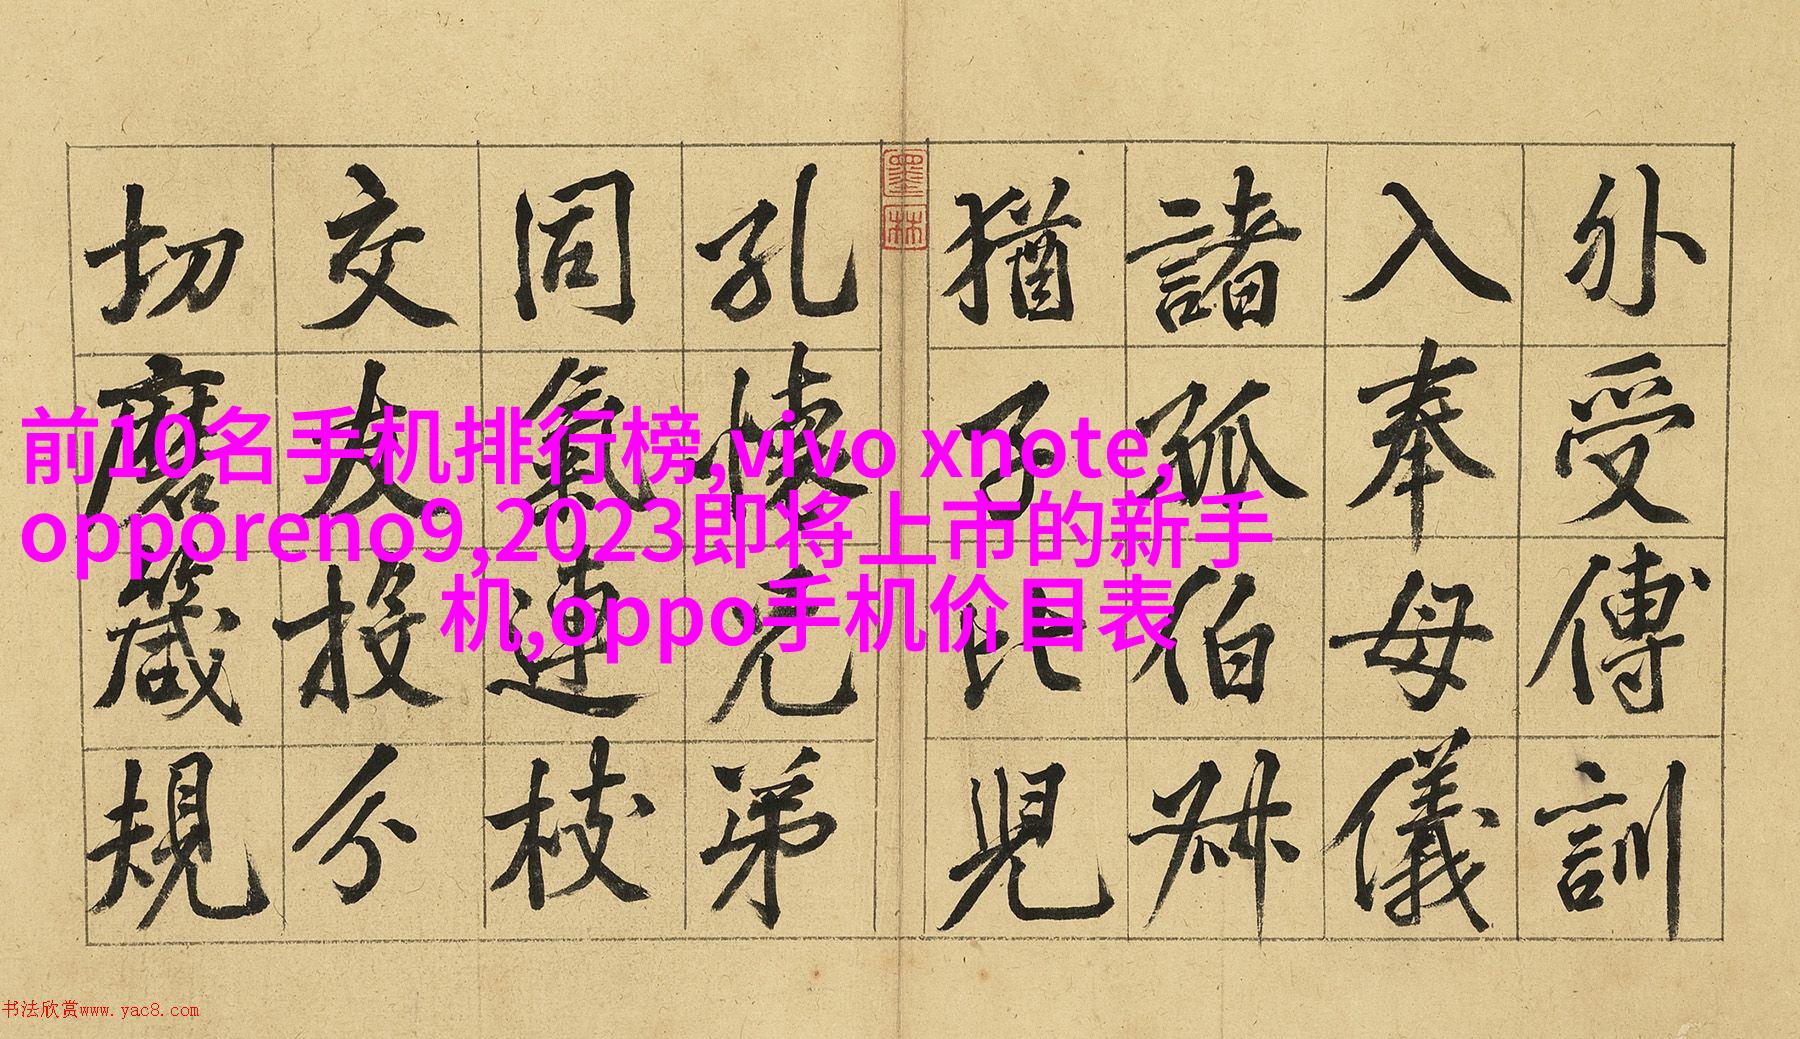 外受傅訓
入奉母儀
諸姑伯叔
猶子比兒
孔懷兄弟
同氣連枝
交友投分
切磨箴規
墨林
前10名手机排行榜,vivo xnote,
opporeno9,2023即将上市的新手
机,oppo手机价目表
书法欣赏www.yac8.com